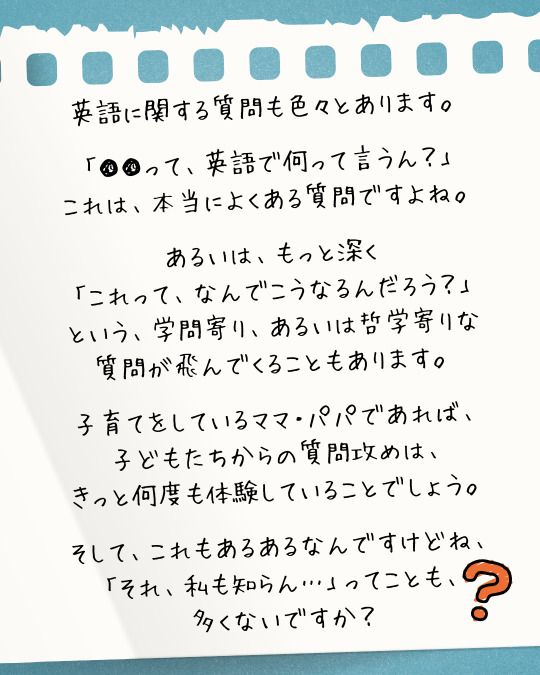 英語に関する質問も色々とあります。
「●●って、英語で何って言うん？」
これは、本当によくある質問ですよね。
あるいは、もっと深く
「これって、なんでこうなるんだろう？」
という、学問寄り、あるいは哲学寄りな
質問が飛んでくることもあります。
子育てをしているママ・パパであれば、
子どもたちからの質問攻めは、
きっと何度も体験していることでしょう。
そして、これもあるあるなんですけどね、
「それ、私も知らん…」ってことも、
多くないですか？